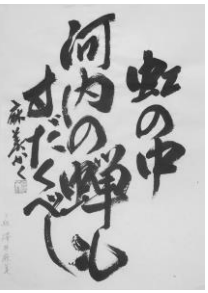 虹の中
河内の蝉も
すだくべし
麻美かく